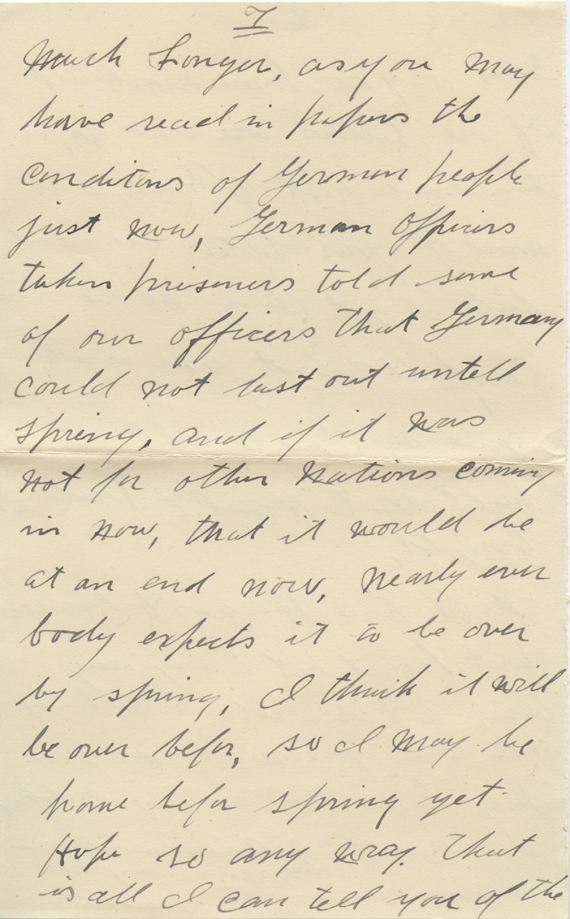 7
Much Longer, as you may
have read in papers the
conditons of German people
just now, German Officers
taken prisoners told some
of our officers that Germany
could not last out untell
spring, and if it was
not for other Nations coming
in now, that it would be
at an end now, nearly ever
body expects it to be over
by spring, I think it will
be over befor, so I may be
home befor spring yet.
Hope so any way. That
is all I can tell you of the